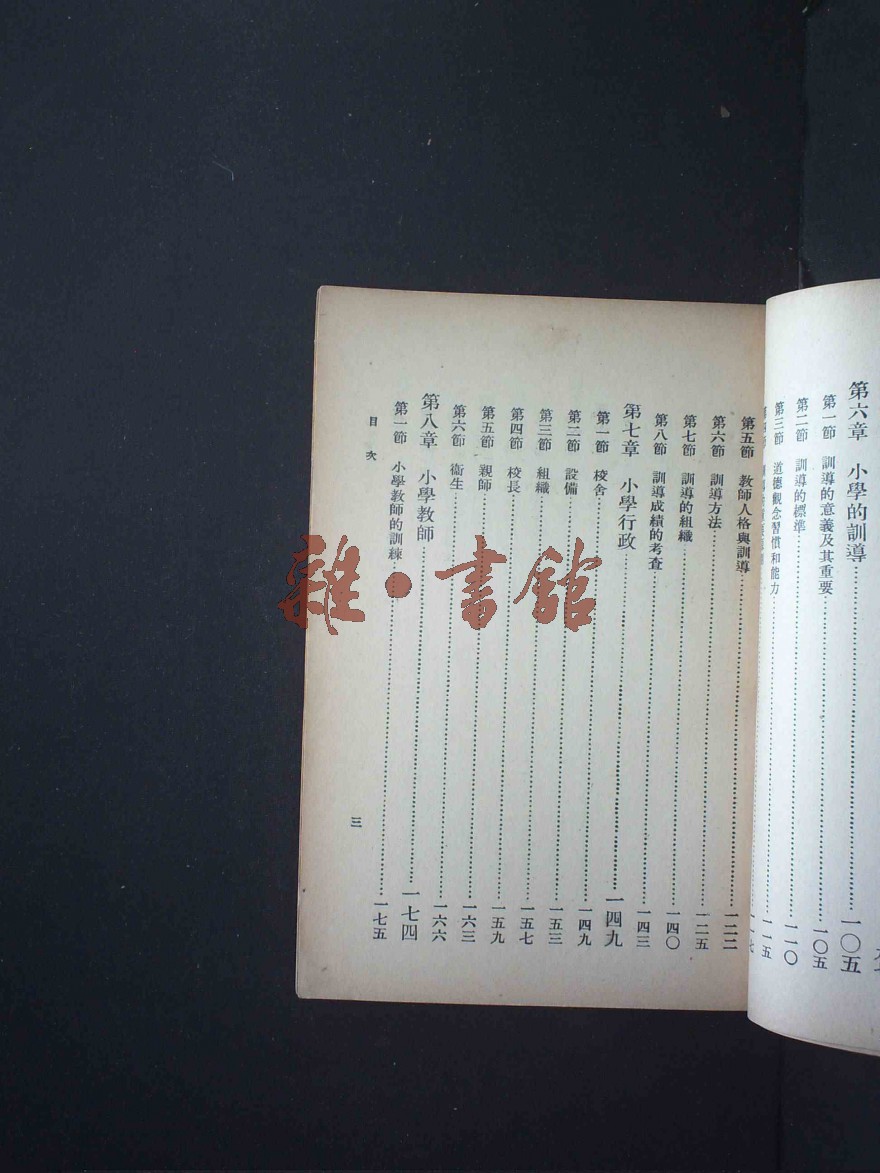 第六章 小學的訓導…………一〇五
第一節 訓導的意義及其重要…………一〇五
第二節 訓導的標準…………一一〇
第三節 道德觀念習慣和能力…………一一五
一一七
第五節 教師人格與訓導…………一二二
第六節 訓導方法…………一二五
第七節 訓導的組織…………一四〇
第八節 訓導成績的考查…………一四三
第七章 小學行政…………一四九
第一節 校舍…………一四九
第二節 設備…………一五三
第三節 組織…………一五七
第四節 校長…………一五九
第五節 親師…………一六三
第六節 衞生…………一六六
第八章 小學教師…………一七四
第一節 小學教師的訓練…………一七五
目次
三
雜·書館